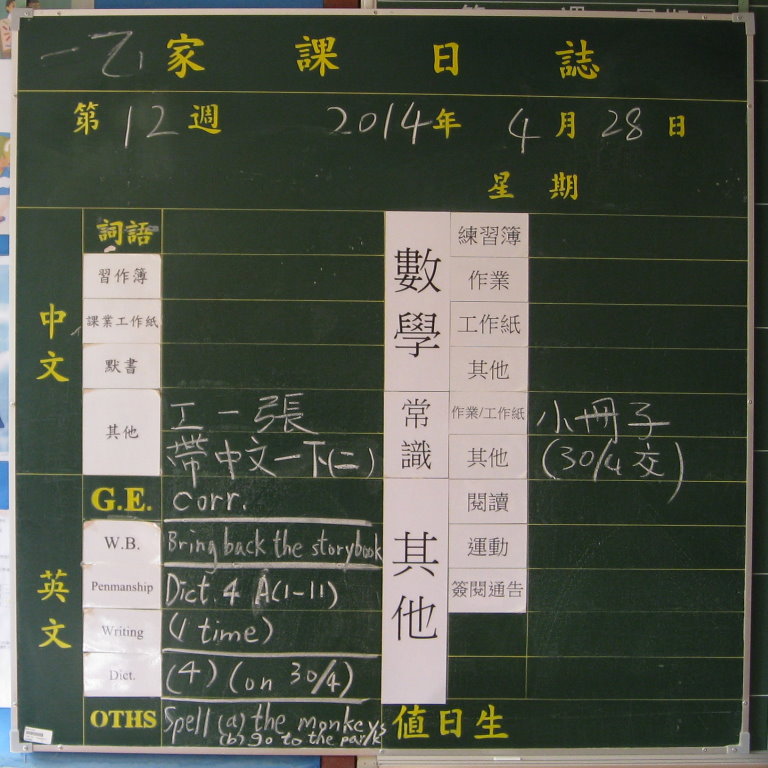 一乙家課日誌
第12週 2014年4月28日
星期
中文
詞語
習作簿
課業工作紙
默書
其他 工一張
帶中文一下(二)
英文
G.E. corr.
W.B. Bring back the storybook
Penmanship Dict. 4 A(1-11)
Writing (1 time)
Dict. (4) (on 30/4)
OTHS Spell (a) the monkeys
(b) go to the park
數學
練習簿
作業
工作紙
其他
常識
作業/工作紙 小冊子
其他 (30/4交)
其他
閱讀
運動
簽閱通告
值日生